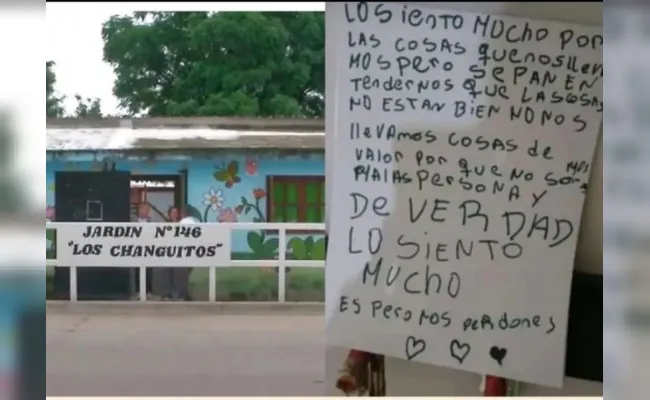 JARDIN N°146
"LOS CHANGUITOS"
LO SIENTO MUCHO POR
LAS COSAS que nos lleva
MOS PERO SEPAN EN
TENDERNOS QUE LAS COSAS
NO ESTAN BIEN NO NOS
llevamos COSAS DE
VALOR POR QUE NO SOMOS
MALAS PERSONA Y
De VERDAD
LO SIENTO
MUCHO
ES PERO NOS PERDONES